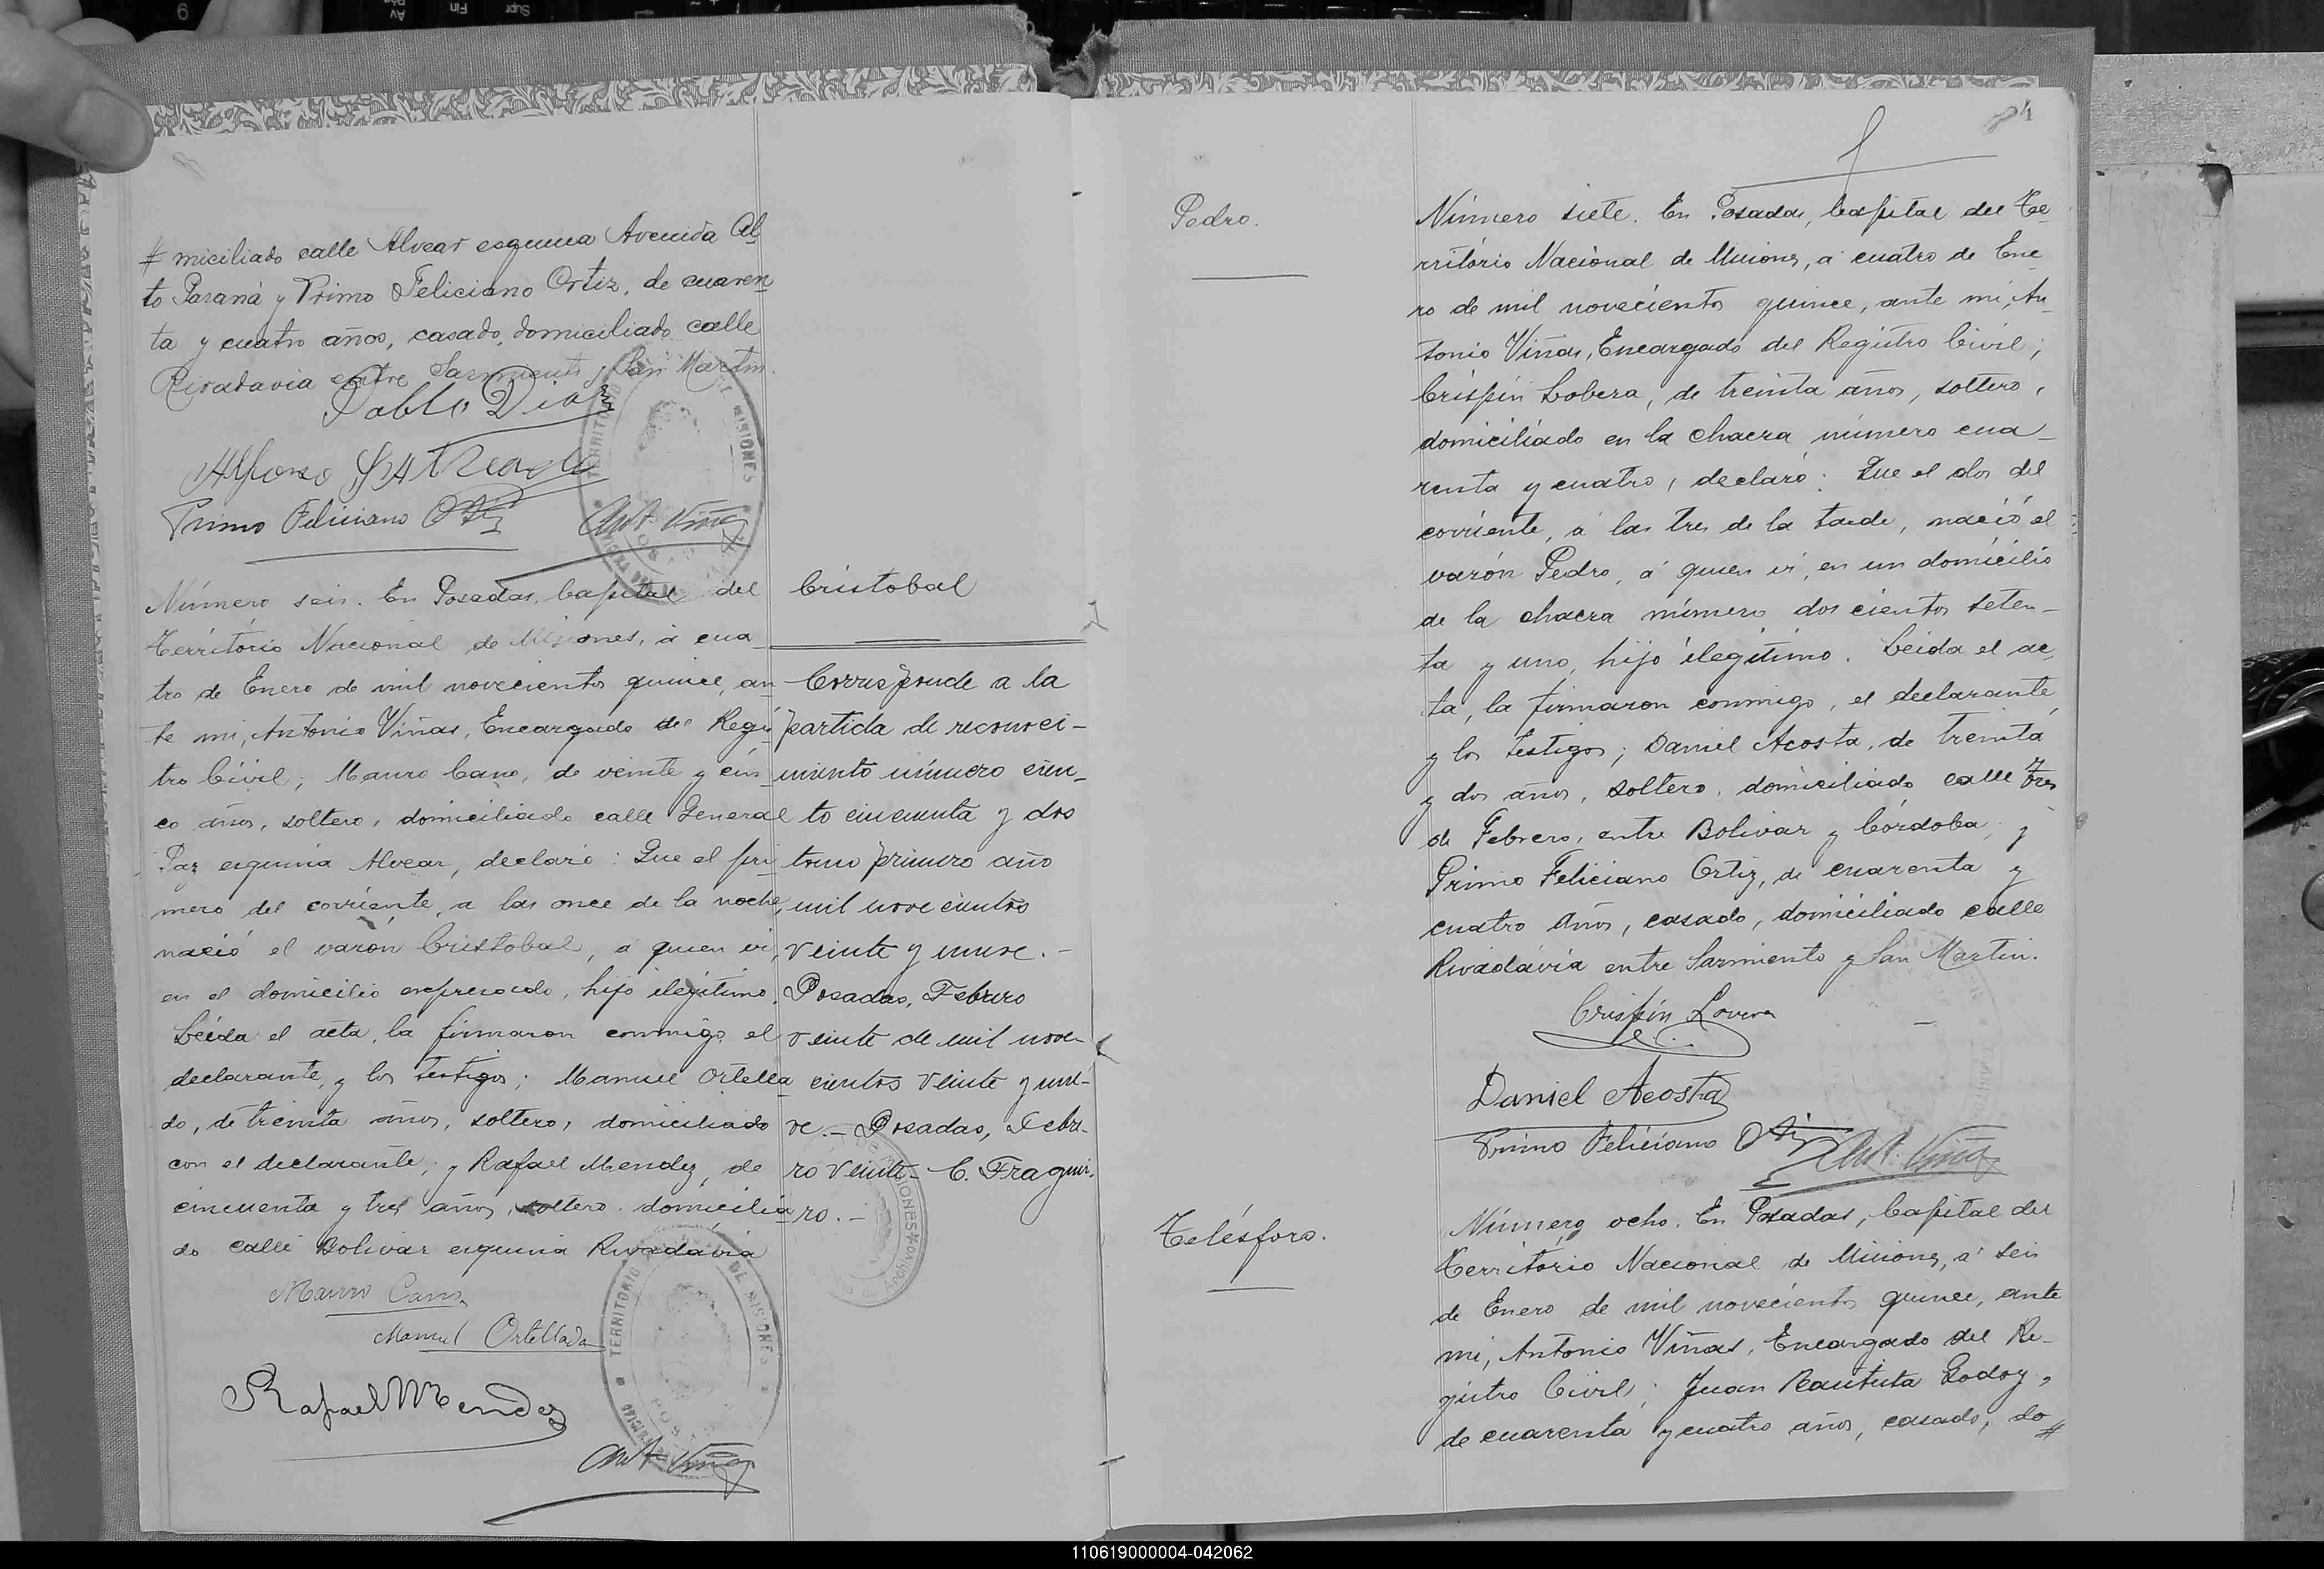 # miciliado calle Alvear esquina Avenida Al
to Paraná y Primo Feliciano Ortiz, de cuaren
ta y cuatro años, casado, domiciliado calle
Rivadavia entre Sarmiento y San Martin.
Pablo Diaz
Alfonso
Primo Feliciano Ortiz
Ant. Viñas
Número seis. En Posadas, Capital del
Território Nacional de Misiones, á cua_
tro de Enero de mil novecientos quince, an
te mi, Antonio Viñas, Encargado del Regis
tro Civil; Mauro Cano, de veinte y cin
co años, soltero, domiciliado calle General
Paz esquina Alvear, declaró: Que el pri
mero del corriente, a las once de la noche,
nació el varón Cristobal, á quien vi,
en el domicilio expresado, hijo ilegitimo.
Leida el acta, la firmaron conmigo el
declarante, y los testigos; Manuel Ortella
do, de treinta años, soltero, domiciliado
con el declarante; y Rafael Mendez, de
cincuenta y tres años, soltero, domicilia
do calle Bolivar esquina Rivadavia
Mauro Cano
Manuel Ortellado
Rafael Mendez
Ant. Viñas
TERRITORIO DE MISIONES
Cristobal
Corresponde a la
partida de reconoci-
miento número cien_
to cincuenta y dos
tomo primero año
mil novecientos
veinte y nueve.-
Posadas, Febrero
veinte de mil nove-
cientos veinte y nue-
ve.- Posadas, Febre-
ro veinte- C. Fragui-
ro.-
4
Pedro.
Número siete. En Posadas, Capital del Te_
rritório Nacional de Misiones, á cuatro de Ene_
ro de mil novecientos quince, ante mi, An_
tonio Viñas, Encargado del Registro Civil;
Crispin Lobera, de treinta años, soltero,
domiciliado en la chacra número cua_
renta y cuatro, declaró: Que el dos del
corriente, á las tres de la tarde, nació el
varón Pedro, á quien vi, en un domicilio
de la chacra número dos cientos seten_
ta y uno, hijo ilegitimo. Leida el ac_
ta, la firmaron conmigo, el declarante,
y los testigos; Daniel Acosta, de treinta
y dos años, soltero, domiciliado calle tres
de Febrero, entre Bolivar y Córdoba, y
Primo Feliciano Ortiz, de cuarenta y
cuatro años, casado, domiciliado calle
Rivadavia entre Sarmiento y San Martin.
Crispín Lovera
Daniel Acosta
Primo Feliciano Ortiz
Ant. Viñas
Telésforo.
Número ocho. En Posadas, Capital del
Território Nacional de Misiones, á seis
de Enero de mil novecientos quince, ante
mi, Antonio Viñas, Encargado del Re_
gistro Civil; Juan Bautista Godoy,
de cuarenta y cuatro años, casado, do
#
110619000004-042062